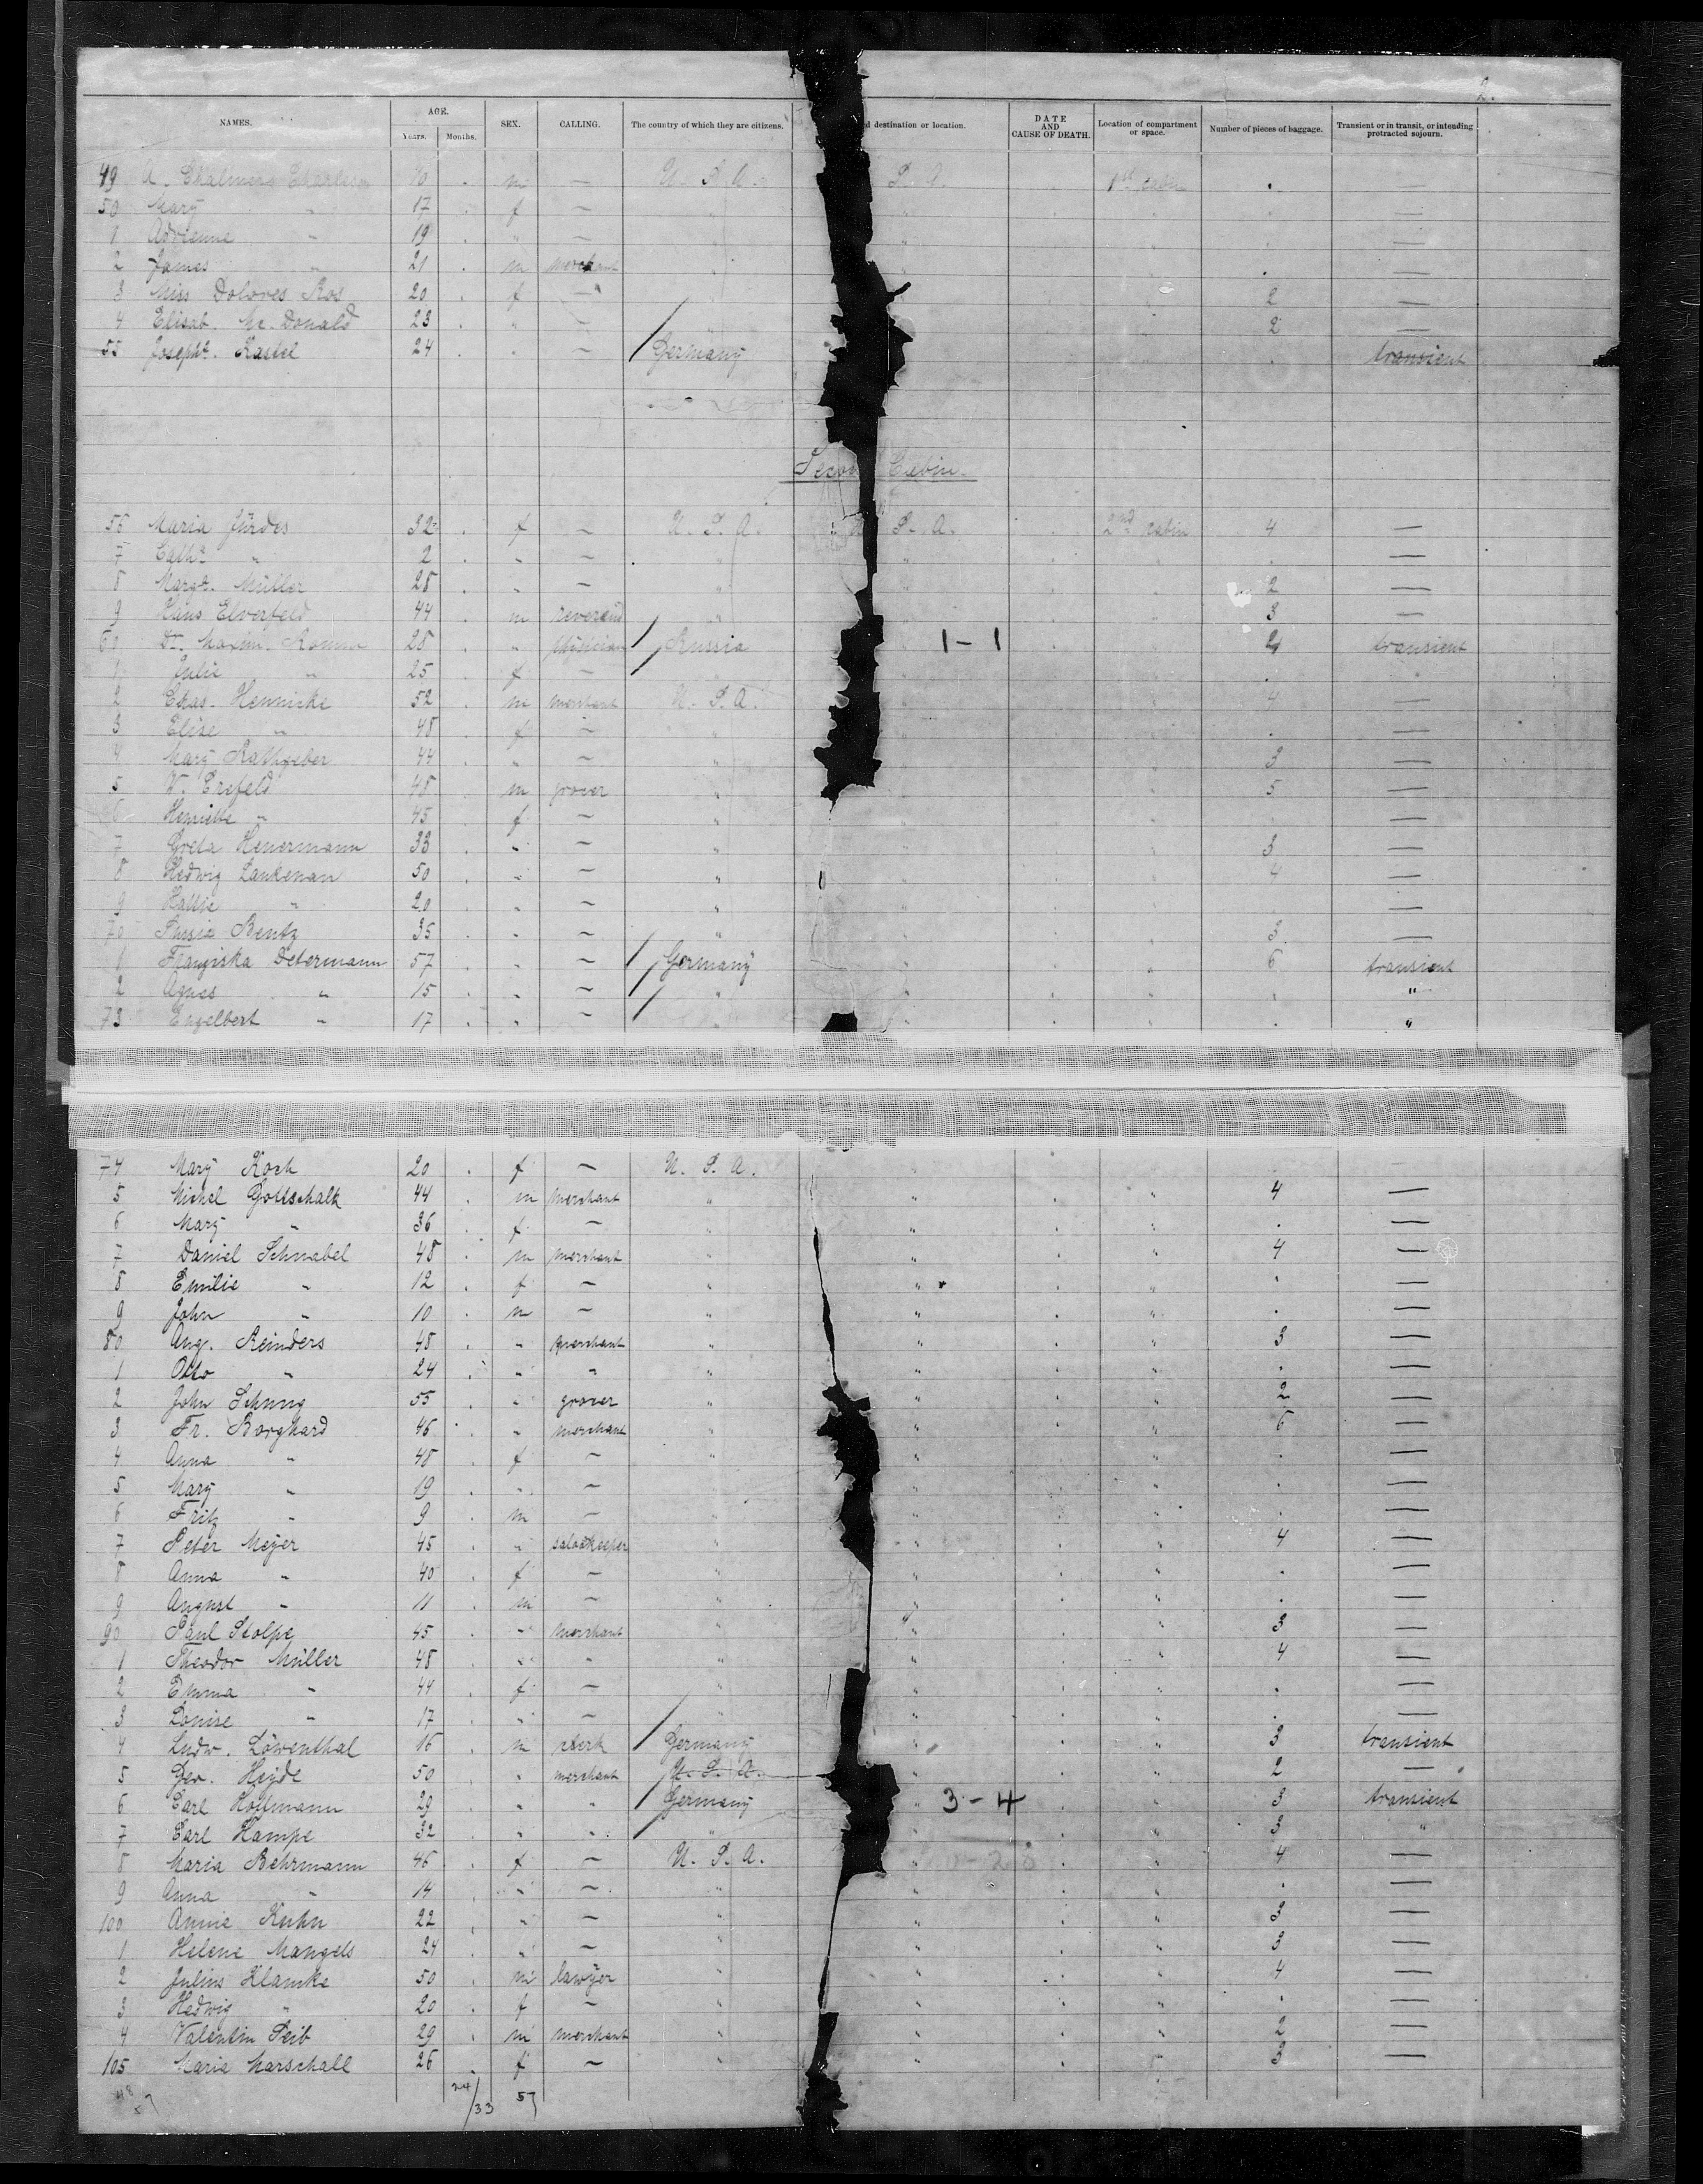 2.
NAMES. AGE. Years. Months. SEX. CALLING. The country of which they are citizens. d destination or location. DATE AND CAUSE OF DEATH. Location of compartment or space. Number of pieces of baggage. Transient or in transit, or intending protracted sojourn.
49 A. Chalmers 10 m — U. S. A. S. A. 1st cabin . —
50 Mary " 17 f — " " —
1 Adrienne " 19 " — " " —
2 James " 21 m merchant " " . —
3 Miss Dolores Ros 20 f — " 2 —
4 Elisab. Mc. Donald 23 " — " 2 —
55 Josepha. Kastel 24 " — Germany " . transient
Secon Cabin.
56 Maria Jürdes 32 f — U. S. A. U S. A. 2nd cabin 4 —
7 Cath. " 2 " — " . —
8 Margt. Müller 28 " — " 2 —
9 Hans Elverfeld 44 m reverend " 3 —
60 Dr. Maxim. 28 " Russia 1-1 transient
1 Julie " 25 f — " . "
2 Chas. Hennicke 52 m merchant U. S. A. " 4 —
3 Elise " 48 f — " . —
4 Mary Rathgeber 44 " — " 3 —
5 W. Crefeld 48 m grocer " 5 —
6 Henriette " 45 f — " . —
7 Greta Heuermann 33 " — " 3 —
8 Hedwig Lankenau 50 " — " 4 —
9 Hattie " 20 " — " —
70 Bentz 35 " — " 3 —
1 Franziska Determann 57 " — Germany " " 6 transient
2 Agnes " 15 " — " " " . "
73 Engelbert " 17 " — " " " . "
74 Mary Koch 20 f — U. S. A.
5 Michel Gottschalk 44 m merchant " " " 4 —
6 Mary " 36 f — " " " . —
7 Daniel Schnabel 48 m merchant " " " 4 —
8 Emilie " 12 f — " " " . —
9 John " 10 m — " " " . —
80 Aug. Reinders 48 " merchant " " " 3 —
1 Otto " 24 " " " " " . —
2 John Schung 55 " grocer " " " 2 —
3 Fr. Borghard 46 " merchant " " " 6 —
4 Anna " 48 f — " " " . —
5 Mary " 19 " — " " " . —
6 Fritz " 9 m — " " " . —
7 Peter Meyer 45 " salookeeper " " " 4 —
8 Anna " 40 f — " " " . —
9 August " 11 m — " " " . —
90 Paul Stolpe 45 " merchant " " " 3 —
1 Theodor Müller 48 " " " " " 4 —
2 Emma " 44 f — " " " . —
3 Louise " 17 " — " " " . —
4 Ludw. Löwenthal 16 m clerk Germany " " 3 transient
5 Geo. Heyde 50 " merchant U. S. A. " 2 —
6 Carl Hollmann 29 " " Germany " 3-4 " 3 transient
7 Carl Kampe 32 " " " " " 3 "
8 Maria Behrmann 46 f — U. S. A. " " 4 —
9 Anna " 14 " — " " " . —
100 Annie Kuhn 22 " — " " " 3 —
1 Helene Mangels 24 " — " " " 3 —
2 Julius Klamke 50 m lawyer " " " 4 —
3 Hedwig " 20 f — " " " . —
4 Valentin Seib 29 m merchant " " " 2 —
105 Maria Marschall 26 f — " " " 3 —
24/33 57